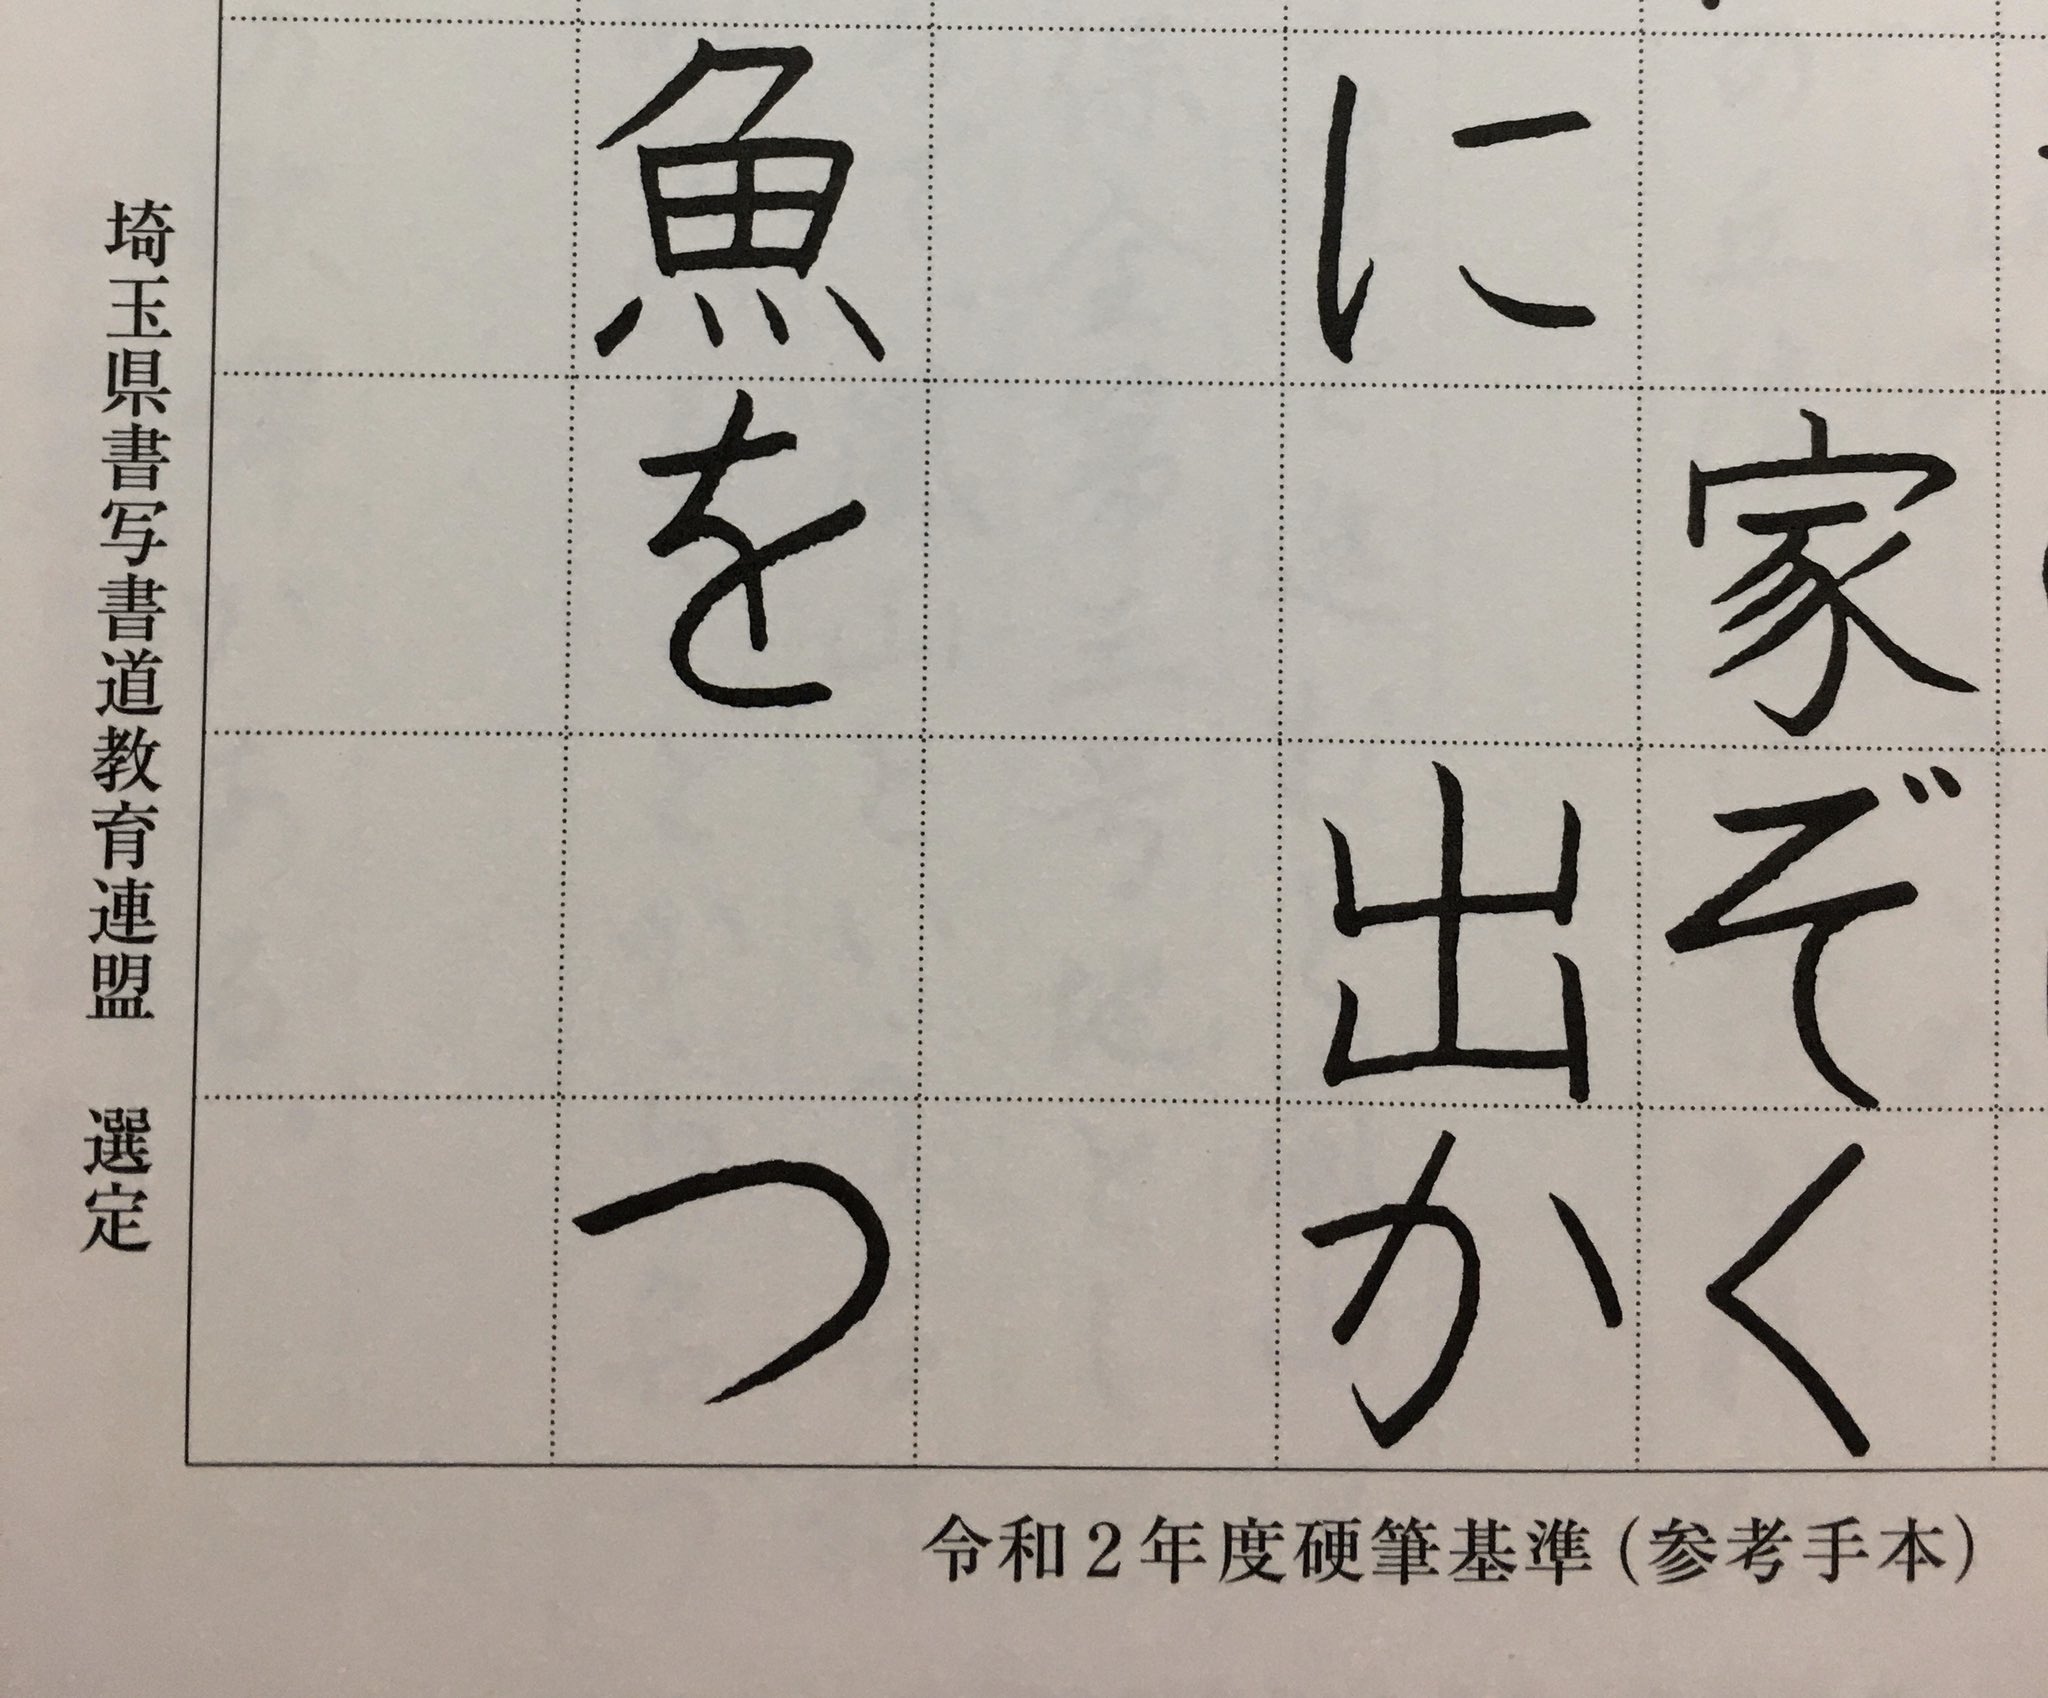 家ぞく
に　出か
魚を　つ
埼玉県書写書道教育連盟　選定
令和2年度硬筆基準(参考手本)